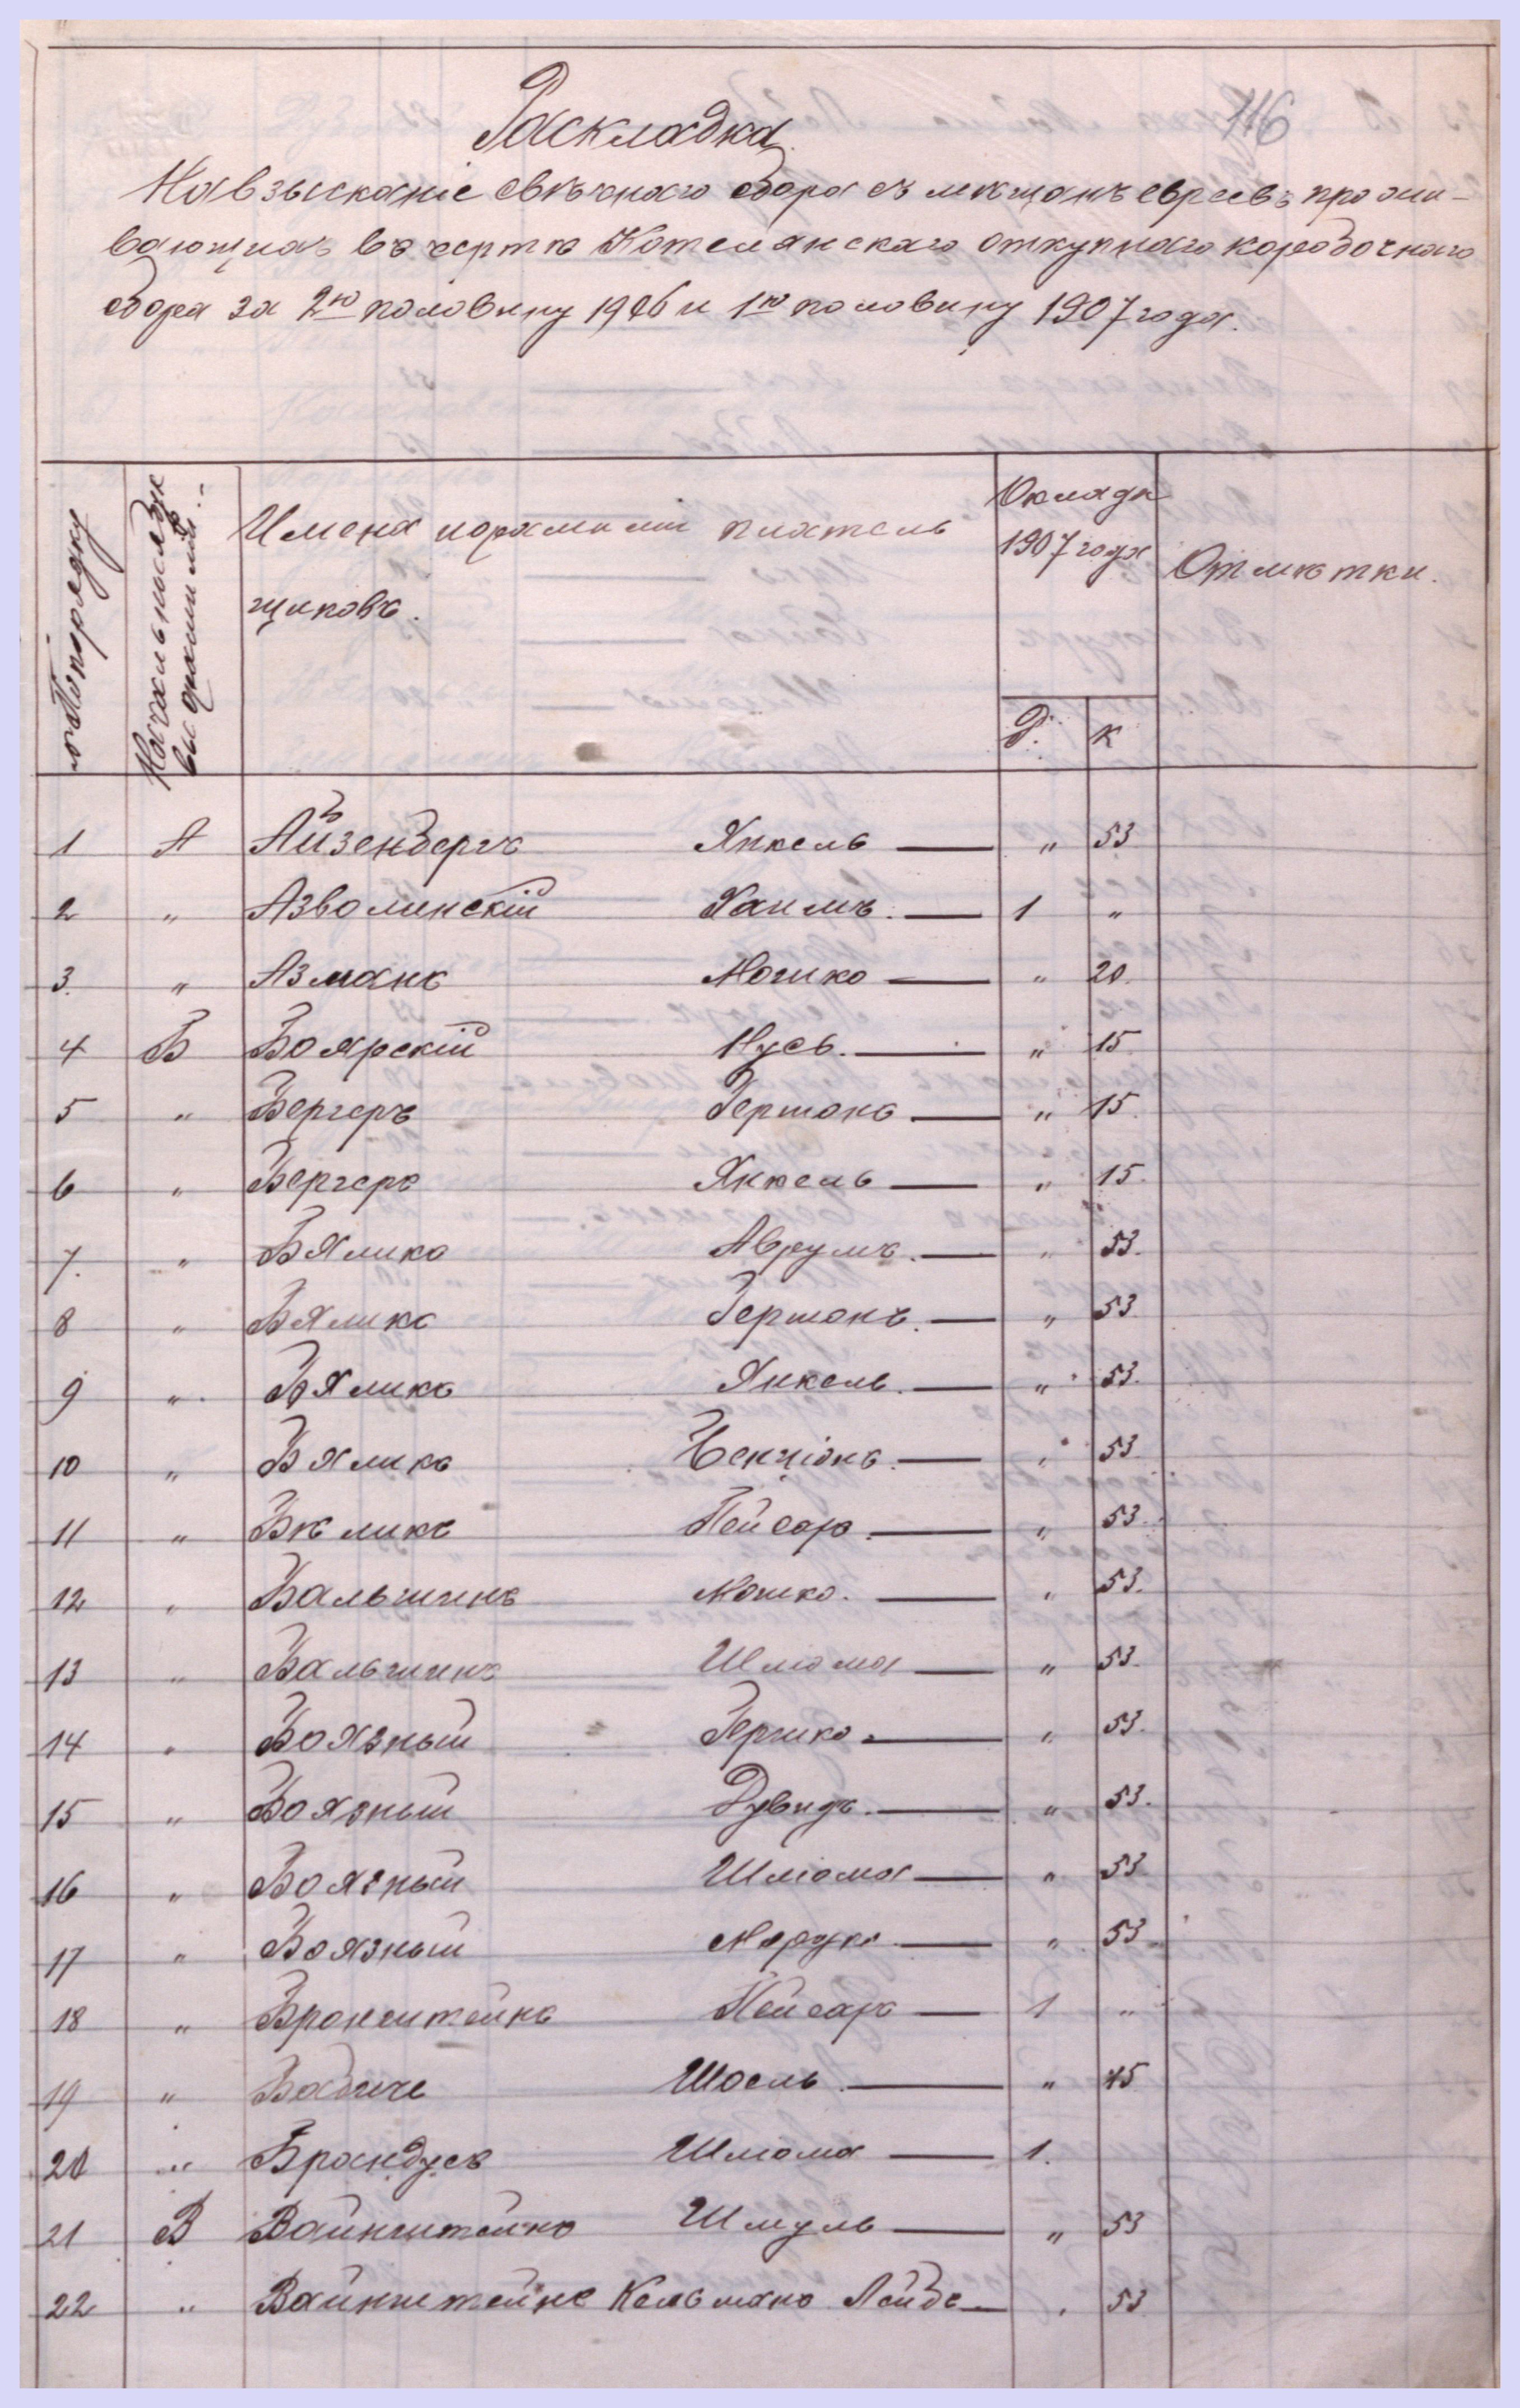 116
Раскладка
На взысканіе свѣчнаго сбора съ мѣщанъ евреевъ прожи-
вающихъ въ чертѣ Котелянскаго откупнаго коробочнаго
сбора за 2ю половину 1906 и 1ю половину 1907 года.
№ По порядку
Имена и фамиліи платель
щиковъ.
Окладъ
1907 года
Отмѣтки.
Р. К
1 А Айзенбергъ Янкель — " 53
2 " Азволинскій Хаимъ. — 1 "
3. " Азманъ Мошко — " 20.
4 Б Боярскій Нусь. — " 15
5 " Бергеръ Гершонъ — " 15.
6 " Бергеръ Янкель — " 15.
7. " Бяликъ Аврумъ. — " 53.
8 " Бяликъ Гершонъ. — " 53
9 " Бяликъ Янкель. — " 53.
10 " Бяликъ Бенціонъ. — " 53
11 " Бяликъ Пейсаръ. — " 53
12 " Бальшинъ Мошко. — " 53.
13 " Бальшинъ Шліома — " 53.
14 " Боязный Гершко — " 53.
15 " Боязный Дувидъ. — " 53.
16 " Боязный Шліома — " 53
17 " Боязный — " 53
18 " Бронштейнъ Пейсаръ — 1 "
19 " Бабичъ Шоель. — " 45
20 " Брандусъ Шліома — 1.
21 В Вайнштейнъ Шмуль — " 53
22 " Вайнштейнъ Кельманъ Лейбъ — " 53